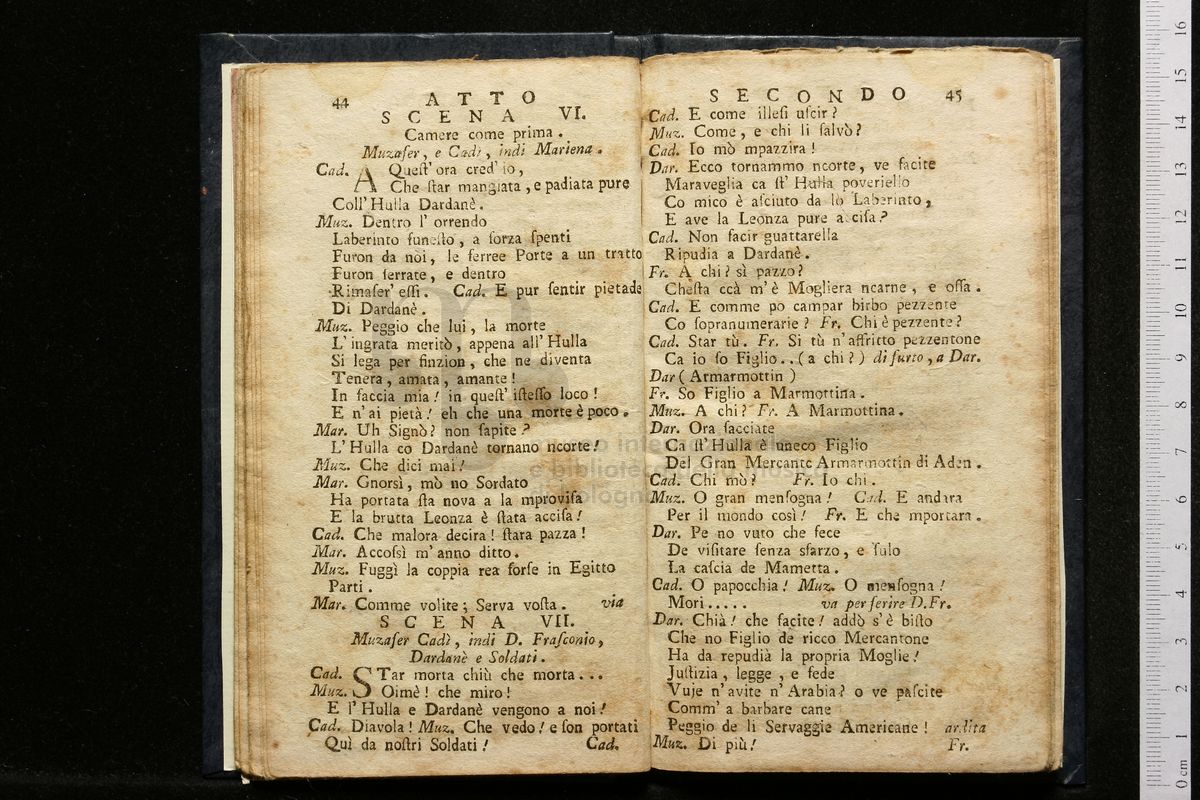 44 ATTO
SCENA VI.
Camere come prima.
Muzafer, e Cadì, indi Mariena.
Cad. A Queſt' ora cred' io,
Che ſtar mangiata, e padiata pure
Coll' Hulla Dardanè.
Muz. Dentro l' orrendo
Laberinto funeſto, a forza ſpenti
Furon da noi, le ferree Porte a un tratto
Furon ſerrate, e dentro
Rimaſer' eſſi. Cad. E pur ſentir pietade
Di Dardanè.
Muz. Peggio che lui, la morte
L' ingrata meritò, appena all' Hulla
Si lega per finzion, che ne diventa
Tenera, amata, amante!
In faccia mia! in queſt' iſteſſo loco!
E n' ai pietà! eh che una morte è poco.
Mar. Uh Signò? non ſapite?
L' Hulla co Dardanè tornano ncorte!
Muz. Che dici mai!
Mar. Gnorsì, mò no Sordato
Ha portata ſta nova a la mproviſa
E la brutta Leonza è ſtata acciſa!
Cad. Che malora decira! ſtara pazza!
Mar. Accoſsì m' anno ditto.
Muz. Fuggì la coppia rea forſe in Egitto
Parti.
Mar. Comme volite; Serva voſta. via
SCENA VII.
Muzafer Cadì, indi D. Fraſconio,
Dardanè e Soldati.
Cad. STar morta chiù che morta...
Muz. Oimè! che miro!
E l' Hulla e Dardanè vengono a noi!
Cad. Diavola! Muz. Che vedo! e ſon portati
Quì da noſtri Soldati! Cad.
SECONDO 45
Cad. E come illeſi uſcir?
Muz. Come, e chi li ſalvò?
Cad. Io mò mpazzira!
Dar. Ecco tornammo ncorte, ve facite
Maraveglia ca ſt' Hulla poveriello
Co mico è aſciuto da lo Laberinto,
E ave la Leonza pure acciſa?
Cad. Non facir guattarella
Ripudia a Dardanè.
Fr. A chi? sì pazzo?
Cheſta ccà m' è Mogliera ncarne, e oſſa.
Cad. E comme po campar birbo pezzente
Co ſopranumerarie? Fr. Chi è pezzente?
Cad. Star tù. Fr. Si tù n' affritto pezzentone
Ca io ſo Figlio..(a chi?) di furto, a Dar.
Dar (Armarmottin)
Fr. So Figlio a Marmottina.
Muz. A chi? Fr. A Marmottina.
Dar. Ora facciate
Ca ſt' Hulla è uneco Figlio
Del Gran Mercante Armarmottin di Aden.
Cad. Chi mò? Fr. Io chi.
Muz. O gran menſogna! Cad. E andara
Per il mondo così! Fr. E che mportara.
Dar. Pe no vuto che fece
De viſitare ſenza sfarzo, e ſulo
La caſcia de Mametta.
Cad. O papocchia! Muz. O menſogna!
Mori..... va per ferire D.Fr.
Dar. Chià! che facite! addò s' è biſto
Che no Figlio de ricco Mercantone
Ha da repudià la propria Moglie!
Juſtizia, legge, e fede
Vuje n' avite n' Arabia? o ve paſcite
Comm' a barbare cane
Peggio de li Servaggie Americane! ardita
Muz. Di più! Fr.
0 cm 1 2 3 4 5 6 7 8 9 10 11 12 13 14 15 16